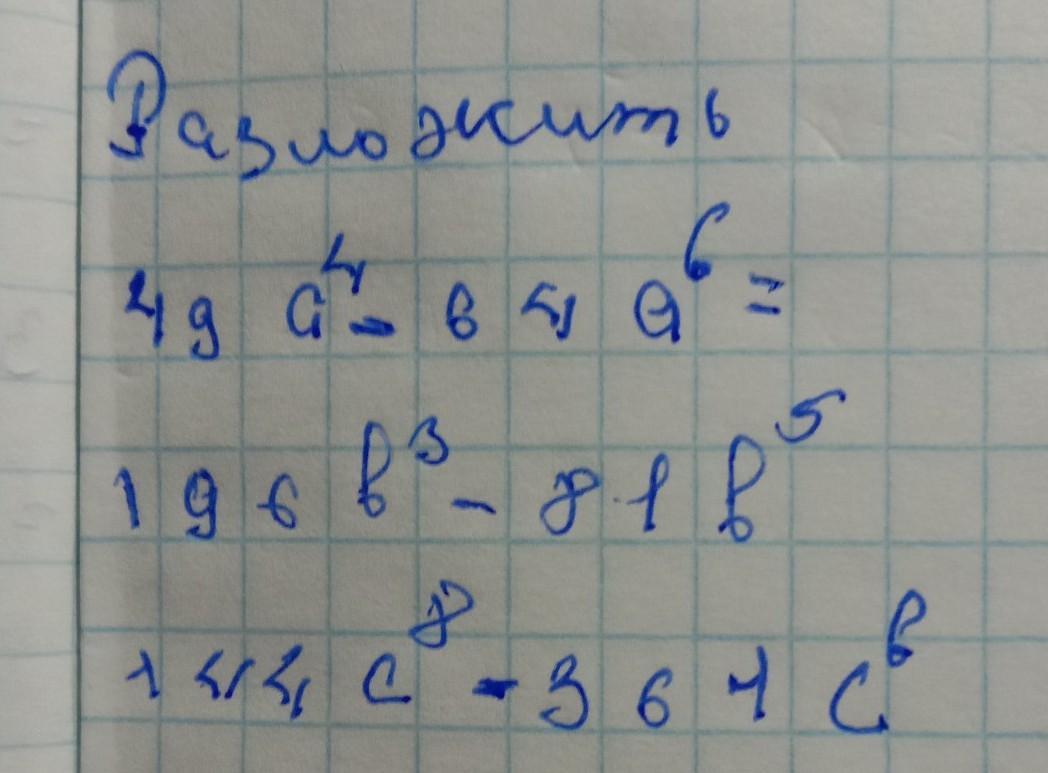 Разложить
49 a⁴ - 64 a⁶ =
196 b³ - 81 b⁵
144 c⁸ - 361 c⁶